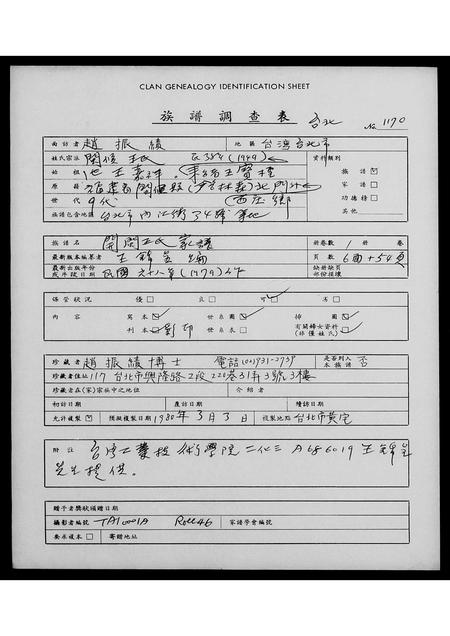 CLAN GENEALOGY IDENTIFICATION SHEET
族譜調查表 台北 No 1170
面訪者 趙振績 地區 台灣台北市
姓氏宗派 閩侯王氏 民38年(1949) 資料類別
始祖 王 族譜
原籍 福建省閩侯縣 北門外 家譜
世代 9代 西庄鄉 功德榜
族譜包含地區 台北市內江街34號 其他
族譜名 閩侯王氏家譜 冊卷數 1 冊 卷
最新版本編纂者 王錦 編 頁數 6面+54頁
最新出版年份或手段日期 民國六十八年(1979) 缺冊缺頁部份損壞
保管狀況 優 良 可 劣
內容 寫本 世系圖 挿圖
刊本 影印 世系表 有關婦女資料(非僅姓氏)
珍藏者 趙振績博士 電話(02)931-2739 是否列入本族譜 否
珍藏者住址 117 台北市興隆路2段220巷31弄3號3樓
珍藏者在(家)宗祧中之地位 介紹者
初訪日期 產訪日期 續訪日期
允許複製 預擬複製日期 1980年3月3日 複製地點 台北市黃宅
附註 台灣工業技術學院 二化三 A686019 王錦
先生提供。
贈予者獎狀頒贈日期
攝影者編號 TA10001A Roll 46 家譜學會編號
要求複本 寄贈地址